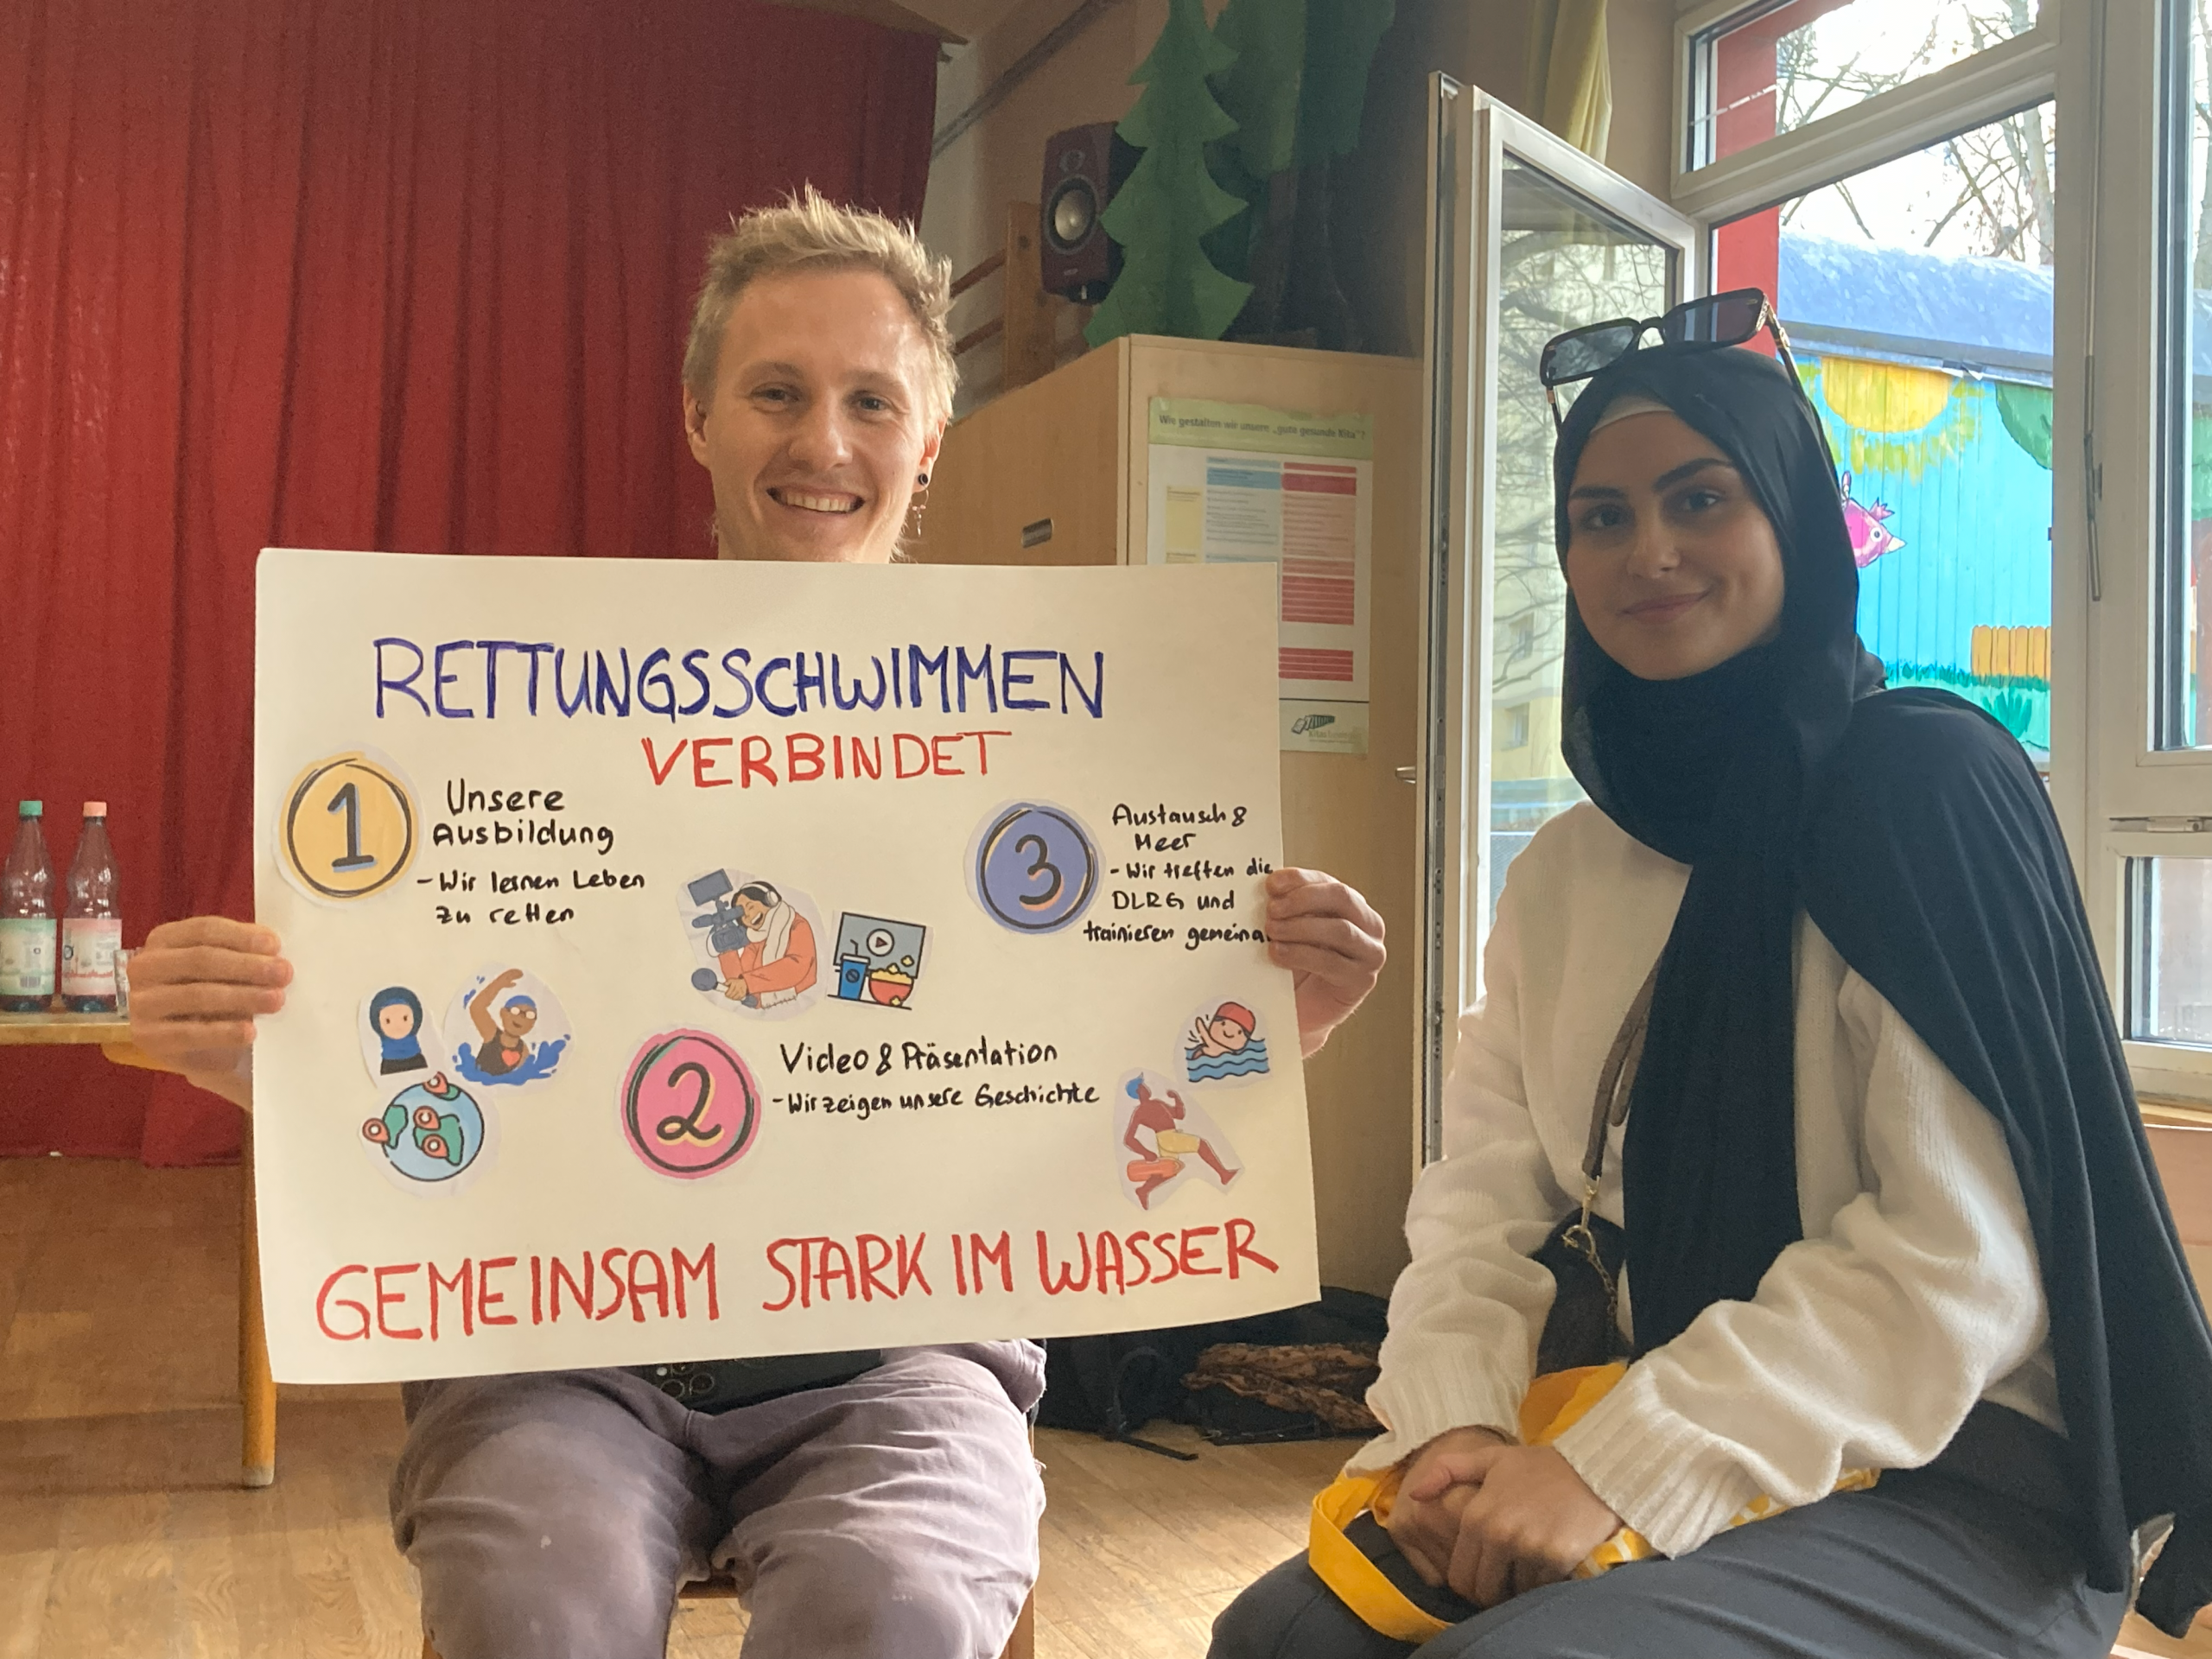 RETTUNGSSCHWIMMEN
VERBINDET
1
Unsere
Ausbildung
- Wir lernen Leben
zu retten
2
Video & Präsentation
- Wir zeigen unsere Geschichte
3
Austausch &
Meer
- Wir treffen die
DLRG und
trainieren
GEMEINSAM STARK IM WASSER
Wie gestalten wir unsere „gute gesunde Kita"?